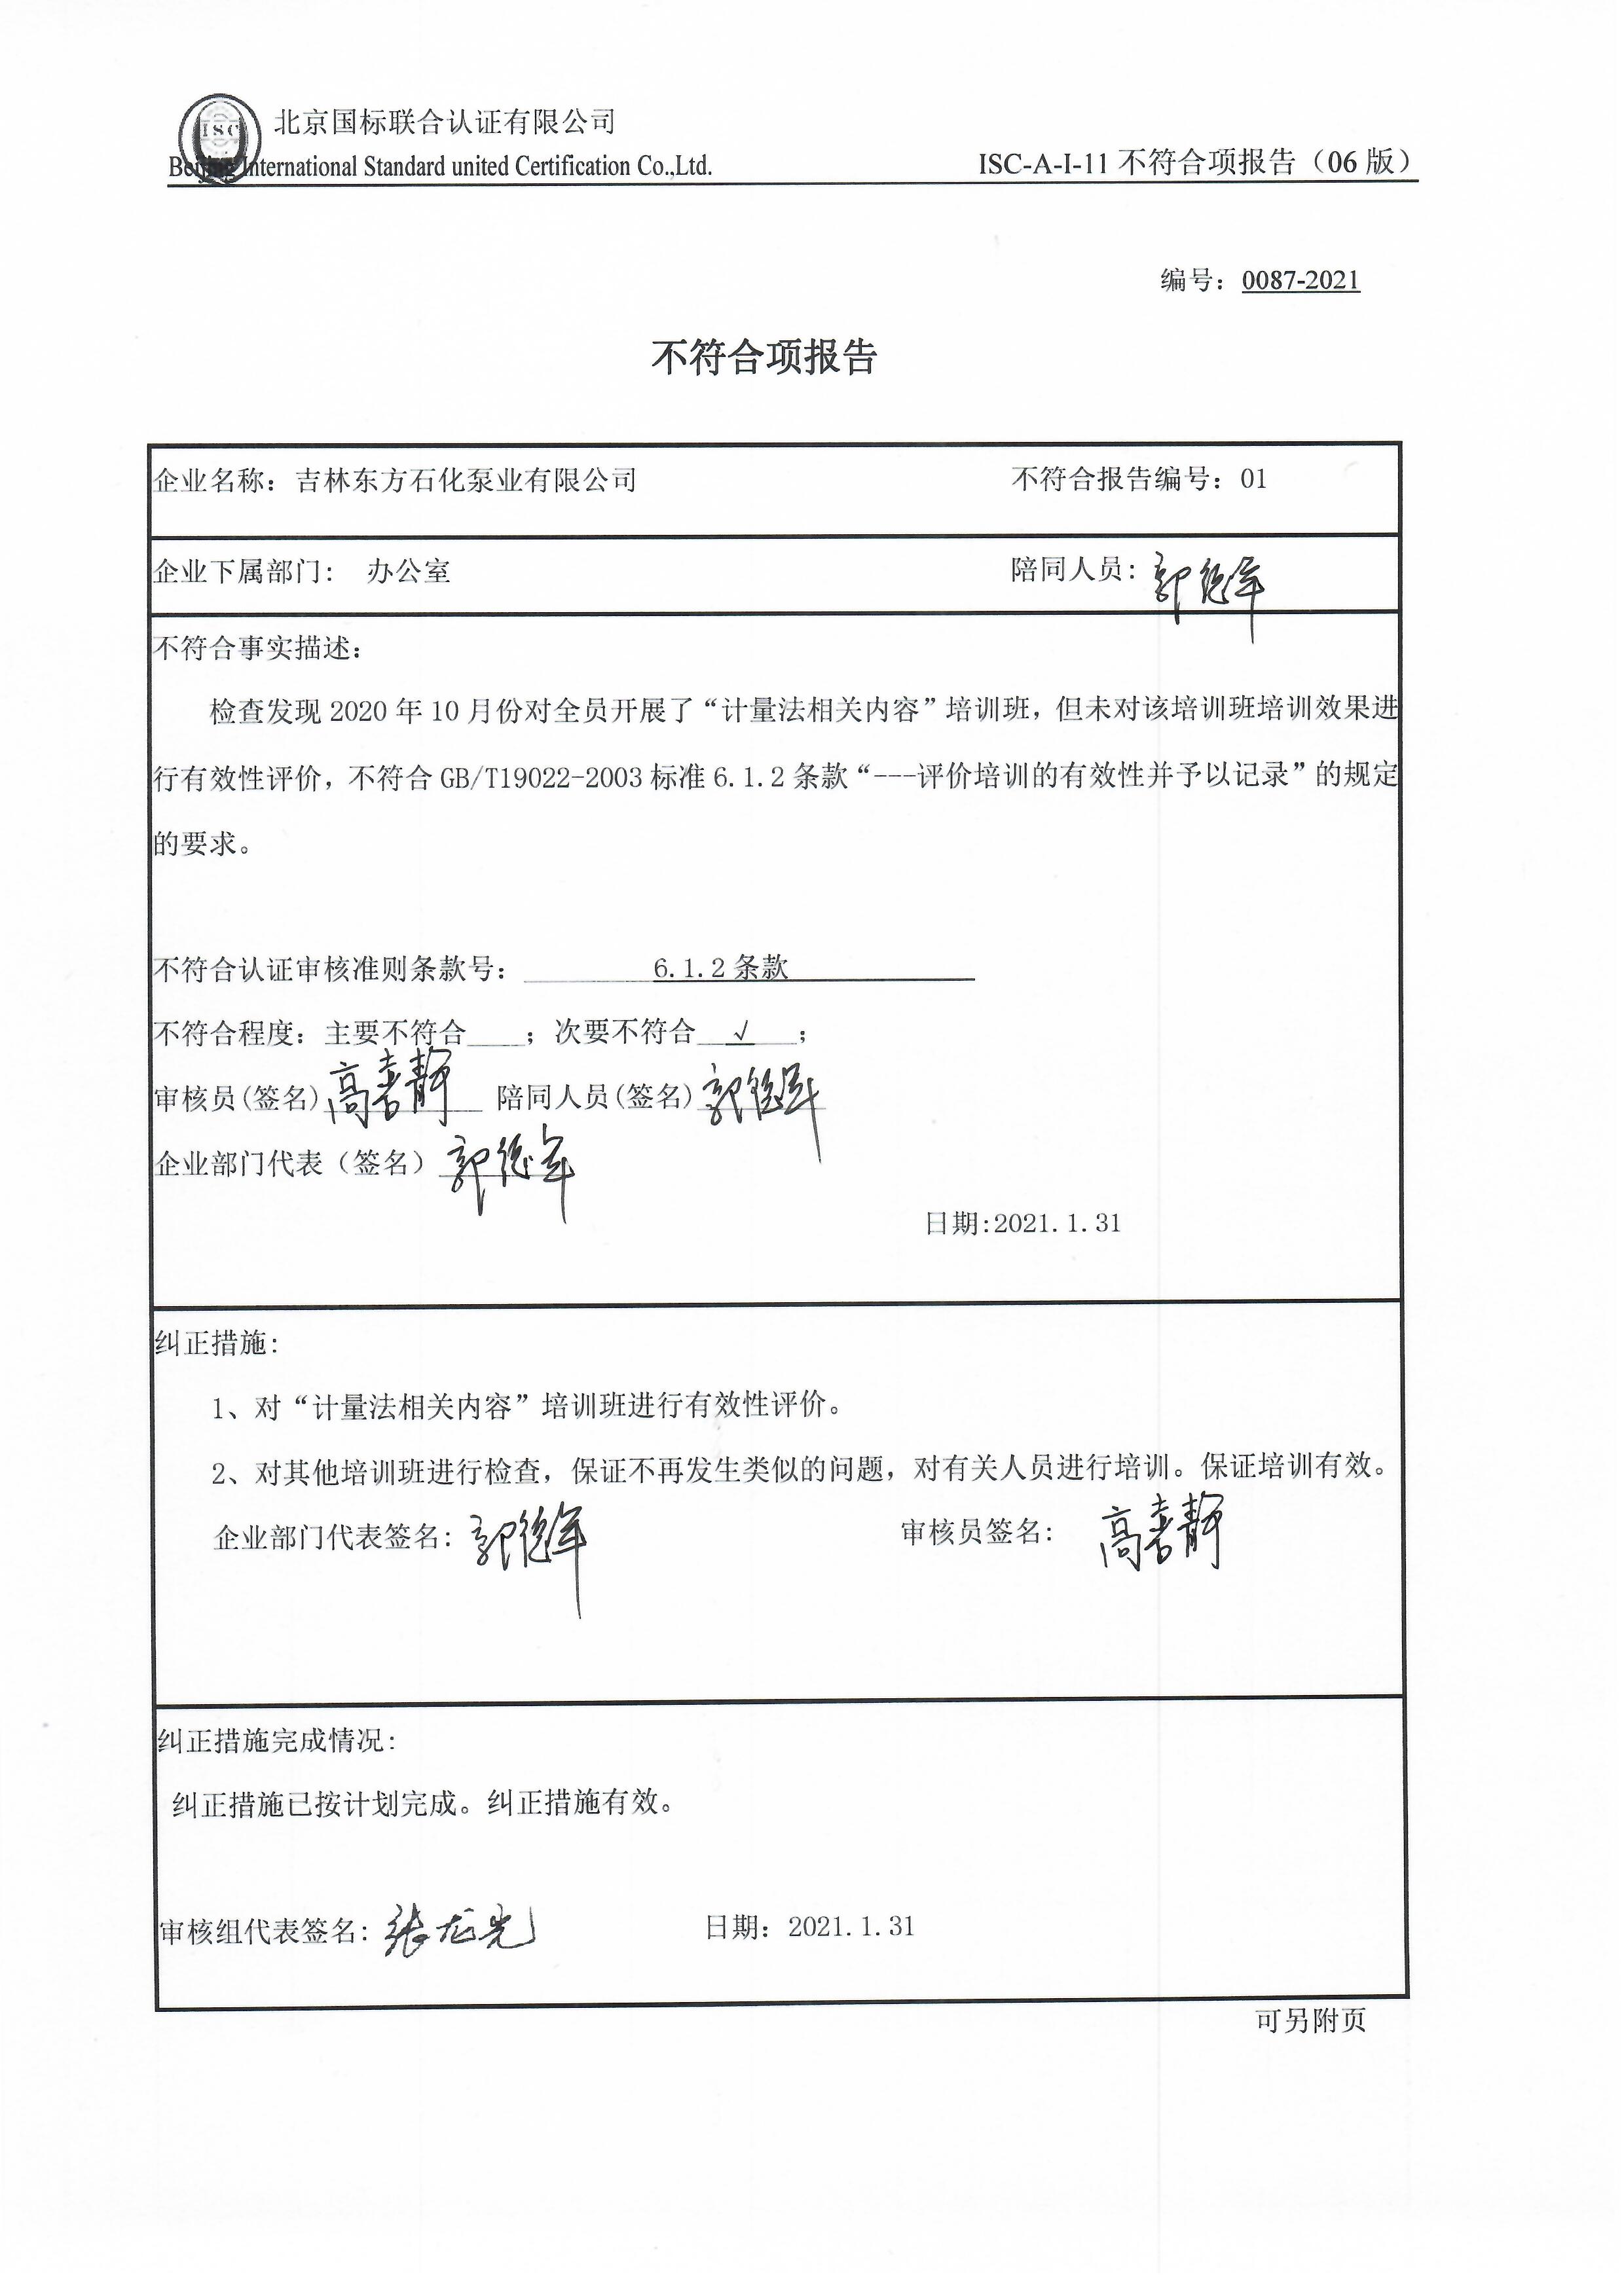 ISC
北京国标联合认证有限公司
Beijing International Standard united Certification Co.,Ltd. ISC-A-I-11 不符合项报告（06 版）
编号：0087-2021
不符合项报告
企业名称：吉林东方石化泵业有限公司 不符合报告编号：01
企业下属部门: 办公室 陪同人员:
不符合事实描述：
检查发现 2020 年 10 月份对全员开展了“计量法相关内容”培训班，但未对该培训班培训效果进
行有效性评价，不符合 GB/T19022-2003 标准 6.1.2 条款“---评价培训的有效性并予以记录”的规定
的要求。
不符合认证审核准则条款号： 6.1.2 条款
不符合程度：主要不符合____；次要不符合 √ ；
审核员(签名) 陪同人员(签名)
企业部门代表（签名）
日期:2021.1.31
纠正措施:
1、对“计量法相关内容”培训班进行有效性评价。
2、对其他培训班进行检查，保证不再发生类似的问题，对有关人员进行培训。保证培训有效。
企业部门代表签名: 审核员签名:
纠正措施完成情况:
纠正措施已按计划完成。纠正措施有效。
审核组代表签名: 张龙光 日期：2021.1.31
可另附页